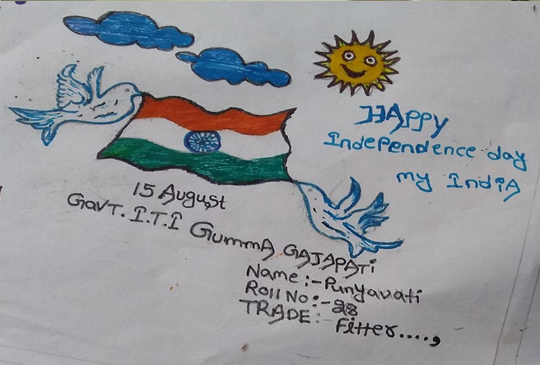 HAPPY
Independence day
my IndiA
15 August
GovT. I.T.I GummA GAJAPATi
Name:-Punyavati
Roll No:-28
TRADE:-Fitter....,